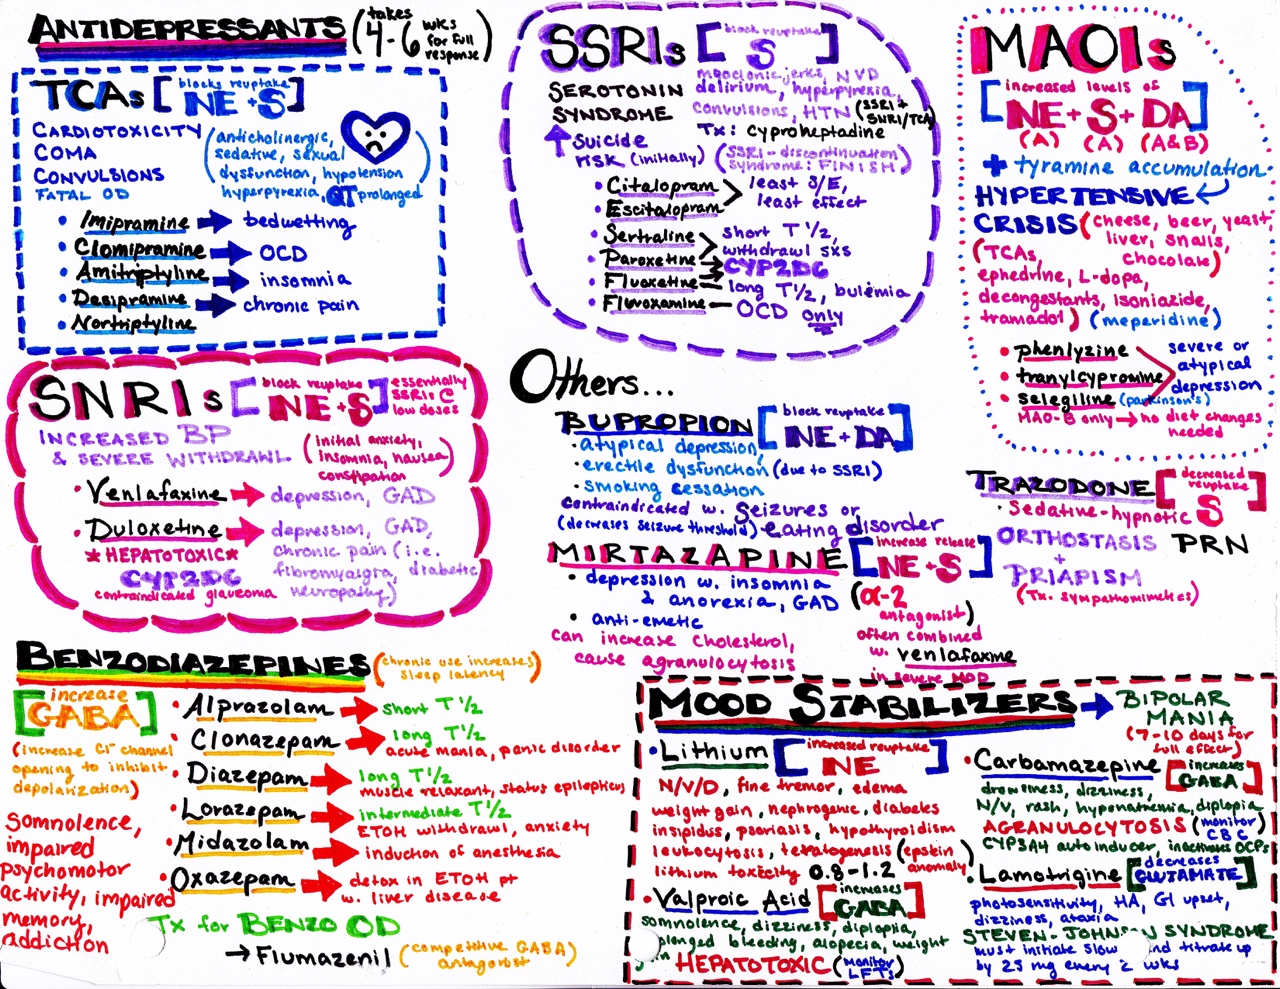 ANTIDEPRESSANTS (takes 4-6 wks for full response)
TCAs [blocks reuptake NE+S]
CARDIOTOXICITY
COMA
CONVULSIONS
FATAL OD
(anticholinergic,
sedative, sexual
dysfunction, hypotension
hyperpyrexia, QT prolonged)
• Imipramine → bedwetting
• Clomipramine → OCD
• Amitriptyline → insomnia
• Desipramine → chronic pain
• Nortriptyline
SSRIs [block reuptake S]
SEROTONIN
SYNDROME
myoclonic jerks, NVD
delirium, hyperpyrexia,
convulsions, HTN (SSRI + SNRI/TCA)
Tx: cyproheptadine
↑ Suicide
risk (initially)
(SSRI-discontinuation
syndrome: FINISH)
• Citalopram
• Escitalopram
least S/E,
least effect
• Sertraline
• Paroxetine
short T 1/2,
withdrawl sxs
CYP2D6
• Fluoxetine - long T 1/2, bulemia
• Fluvoxamine - OCD only
MAOIs
[increased levels of
NE + S + DA]
(A) (A) (A&B)
+ tyramine accumulation
HYPERTENSIVE
CRISIS (cheese, beer, yeast,
liver, snails,
chocolate)
(TCAs,
ephedrine, L-dopa,
decongestants, isoniazide,
tramadol) (meperidine)
• phenlyzine
• tranylcypromine
• selegiline (parkinson's)
severe or
atypical
depression
MAO-B only → no diet changes
needed
SNRIs [block reuptake NE+S] essentially
SSRIs c
low doses
INCREASED BP
& SEVERE WITHDRAWL
(initial anxiety,
insomnia, nausea
constipation)
• Venlafaxine → depression, GAD
• Duloxetine → depression, GAD,
chronic pain (i.e.
fibromyalgia, diabetic
neuropathy)
*HEPATOTOXIC*
CYP2D6
contraindicated glaucoma
Others...
BUPROPION [block reuptake NE+DA]
• atypical depression,
• erectile dysfunction (due to SSRI)
• smoking cessation
contraindicated w. seizures or
(decreases seizure threshold) eating disorder
MIRTAZAPINE [increase release NE+S]
• depression w. insomnia
& anorexia, GAD
• anti-emetic
can increase cholesterol,
cause agranulocytosis
(α-2
antagonist)
often combined
w. venlafaxine
in severe MDD
TRAZODONE [decreased reuptake S]
• Sedative-hypnotic
ORTHOSTASIS PRN
+
PRIAPISM
(Tx. sympathomimetics)
BENZODIAZEPINES (chronic use increases
sleep latency)
[increase
GABA]
(increase Cl- channel
opening to inhibit
depolarization)
Somnolence,
impaired
psychomotor
activity, impaired
memory,
addiction
• Alprazolam → short T 1/2
• Clonazepam → long T 1/2
acute mania, panic disorder
• Diazepam → long T 1/2
muscle relaxant, status epilepticus
• Lorazepam → intermediate T 1/2
ETOH withdrawl, anxiety
• Midazolam → induction of anesthesia
• Oxazepam → detox in ETOH pt
w. liver disease
Tx for BENZO OD
→ Flumazenil (competitive GABA
antagonist)
MOOD STABILIZERS → BIPOLAR
MANIA
(7-10 days for
full effect)
• Lithium [increased reuptake NE]
N/V/D, fine tremor, edema
weight gain, nephrogenic, diabetes
insipidus, psoriasis, hypothyroidism
leukocytosis, teratogenesis (epstein
anomaly)
lithium toxicity 0.8-1.2
• Valproic Acid [increases GABA]
somnolence, dizziness, diplopia,
prolonged bleeding, alopecia, weight
gain HEPATOTOXIC (monitor
LFTs)
• Carbamazepine [increases GABA]
drowsiness, dizziness,
N/V, rash, hyponatremia, diplopia
AGRANULOCYTOSIS (monitor
CBC)
CYP3A4 autoinducer, inactivates OCPs
• Lamotrigine [decreases GLUTAMATE]
photosensitivity, HA, GI upset,
dizziness, ataxia
STEVEN-JOHNSON SYNDROME
must initiate slow and titrate up
by 25 mg every 2 wks